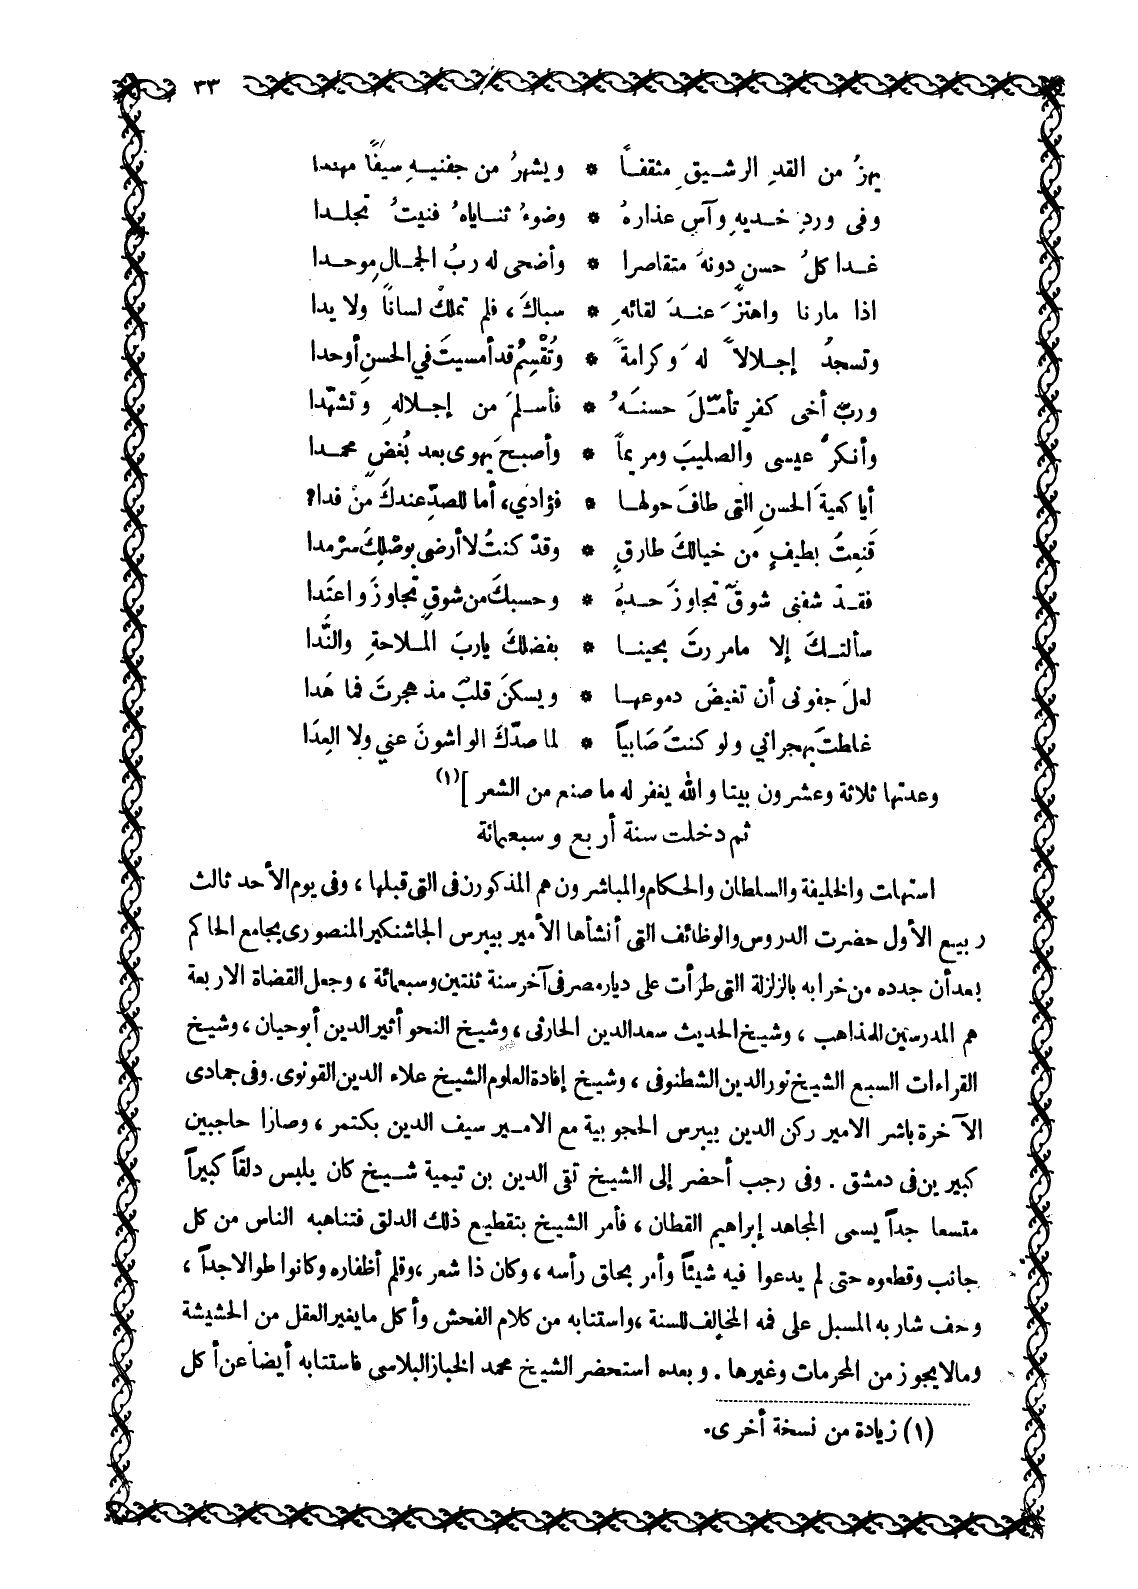 ٣٣
يهزُ من القدِ الرشيقِ مثقفاً * ويشهرُ من جفنيهِ سيفًا مهندا
وفى وردِ خديهِ وآسِ عذارهُ * وضوءُ ثناياهُ فنيتُ تجلدا
غدا كلُ حسن دونهَ متقاصرا * وأضحى له ربُ الجمالِ موحدا
اذا مارنا واهتزَّ عندَ لقائهِ * سباكَ، فلم تملكْ لسانًا ولا يدا
وتسجدُ إجلالاً لهَ وكرامةً * وتُقْسِمُ قد أمسيتَ في الحسنِ أوحدا
وربّ أخى كفرٍ تأمّلَ حسنَهُ * فأسلمَ من إجلالهِ وتشهّدا
وأنكرَ عيسى والصليبَ ومريماً * وأصبحَ يهوى بعد بُغضٍ محمدا
أيا كعبةَ الحسنِ التى طافَ حولها * فؤادي، أما للصدِّ عندكَ منْ فدا؟
قَنِعتُ بطيفٍ من خيالكَ طارقٍ * وقدْ كنتُ لا أرضى بوصْلِكَ سرْمدا
فقدْ شفنى شوقٌ تجاوزَ حدهُ * وحسبكَ من شوقٍ تجاوزَ واعتَدا
سألتكَ إلا مامررتَ بحينا * بفضلكَ ياربَ الملاحةِ والنَّدا
لعلَ جفونى أن تغيضَ دموعها * ويسكنَ قلبٌ مذ هجرتَ فما هَدا
غلطتَ بهجراني ولو كنتَ صَابياً * لما صدّكَ الواشونَ عني ولا العِدَا
وعدتها ثلاثة وعشرون بيتا والله يغفر له ما صنع من الشعر ](١)
ثم دخلت سنة أربع وسبعمائة
استهلت والخليفة والسلطان والحكام والمباشرون هم المذكورن فى التى قبلها، وفى يوم الأحد ثالث
ربيع الأول حضرت الدروس والوظائف التى أنشأها الأمير بيبرس الجاشنكير المنصورى بجامع الحاكم
بعد أن جدده من خرابه بالزلزلة التى طرأت على ديار مصر فى آخر سنة ثنتين وسبعمائة، وجعل القضاة الاربعة
هم المدرسين للمذاهب، وشيخ الحديث سعد الدين الحارثى، وشيخ النحو أثير الدين أبو حيان، وشيخ
القراءات السبع الشيخ نور الدين الشطنوفى، وشيخ إفادة العلوم الشيخ علاء الدين القونوى. وفى جمادى
الآخرة باشر الامير ركن الدين بيبرس الحجوبية مع الامير سيف الدين بكتمر، وصارا حاجبين
كبيرين فى دمشق. وفى رجب أحضر إلى الشيخ تقى الدين بن تيمية شيخ كان يلبس دلقاً كبيراً
متسعا جداً يسمى المجاهد إبراهيم القطان، فأمر الشيخ بتقطيع ذلك الدلق فتناهبه الناس من كل
جانب وقطعوه حتى لم يدعوا فيه شيئاً وأمر بحلق رأسه، وكان ذا شعر، وقلم أظفاره وكانوا طوالاجداً،
وحف شاربه المسبل على فمه المخالف للسنة، واستتابه من كلام الفحش وأكل ما يغير العقل من الحشيشة
ومالايجوز من المحرمات وغيرها. وبعده استحضر الشيخ محمد الخباز البلاسى فاستتابه أيضاً عن أكل
(١) زيادة من نسخة أخرى.